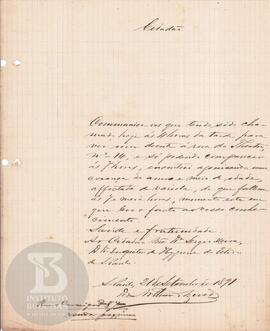 Cidadão
Communico-vos que tendo sido cha-
mado hoje ás 4 horas da tarde para
ver um doente á rua do Theatro
nº 14, e só podendo comparecer
ás 7 horas, encontrei agonisando uma
criança de anno e meio de idade,
affectada de variola, de que falleceu
ás 7 e meia horas, momento este em
que levo o facto ao vosso conhe-
cimento.
Saude e fraternidade.
Ao Cidadão Dr. Sergio Meira
Inspector de Hygiene do Estado
de S. Paulo
S. Paulo, 21 Setembro de 1891
INSTITUTO